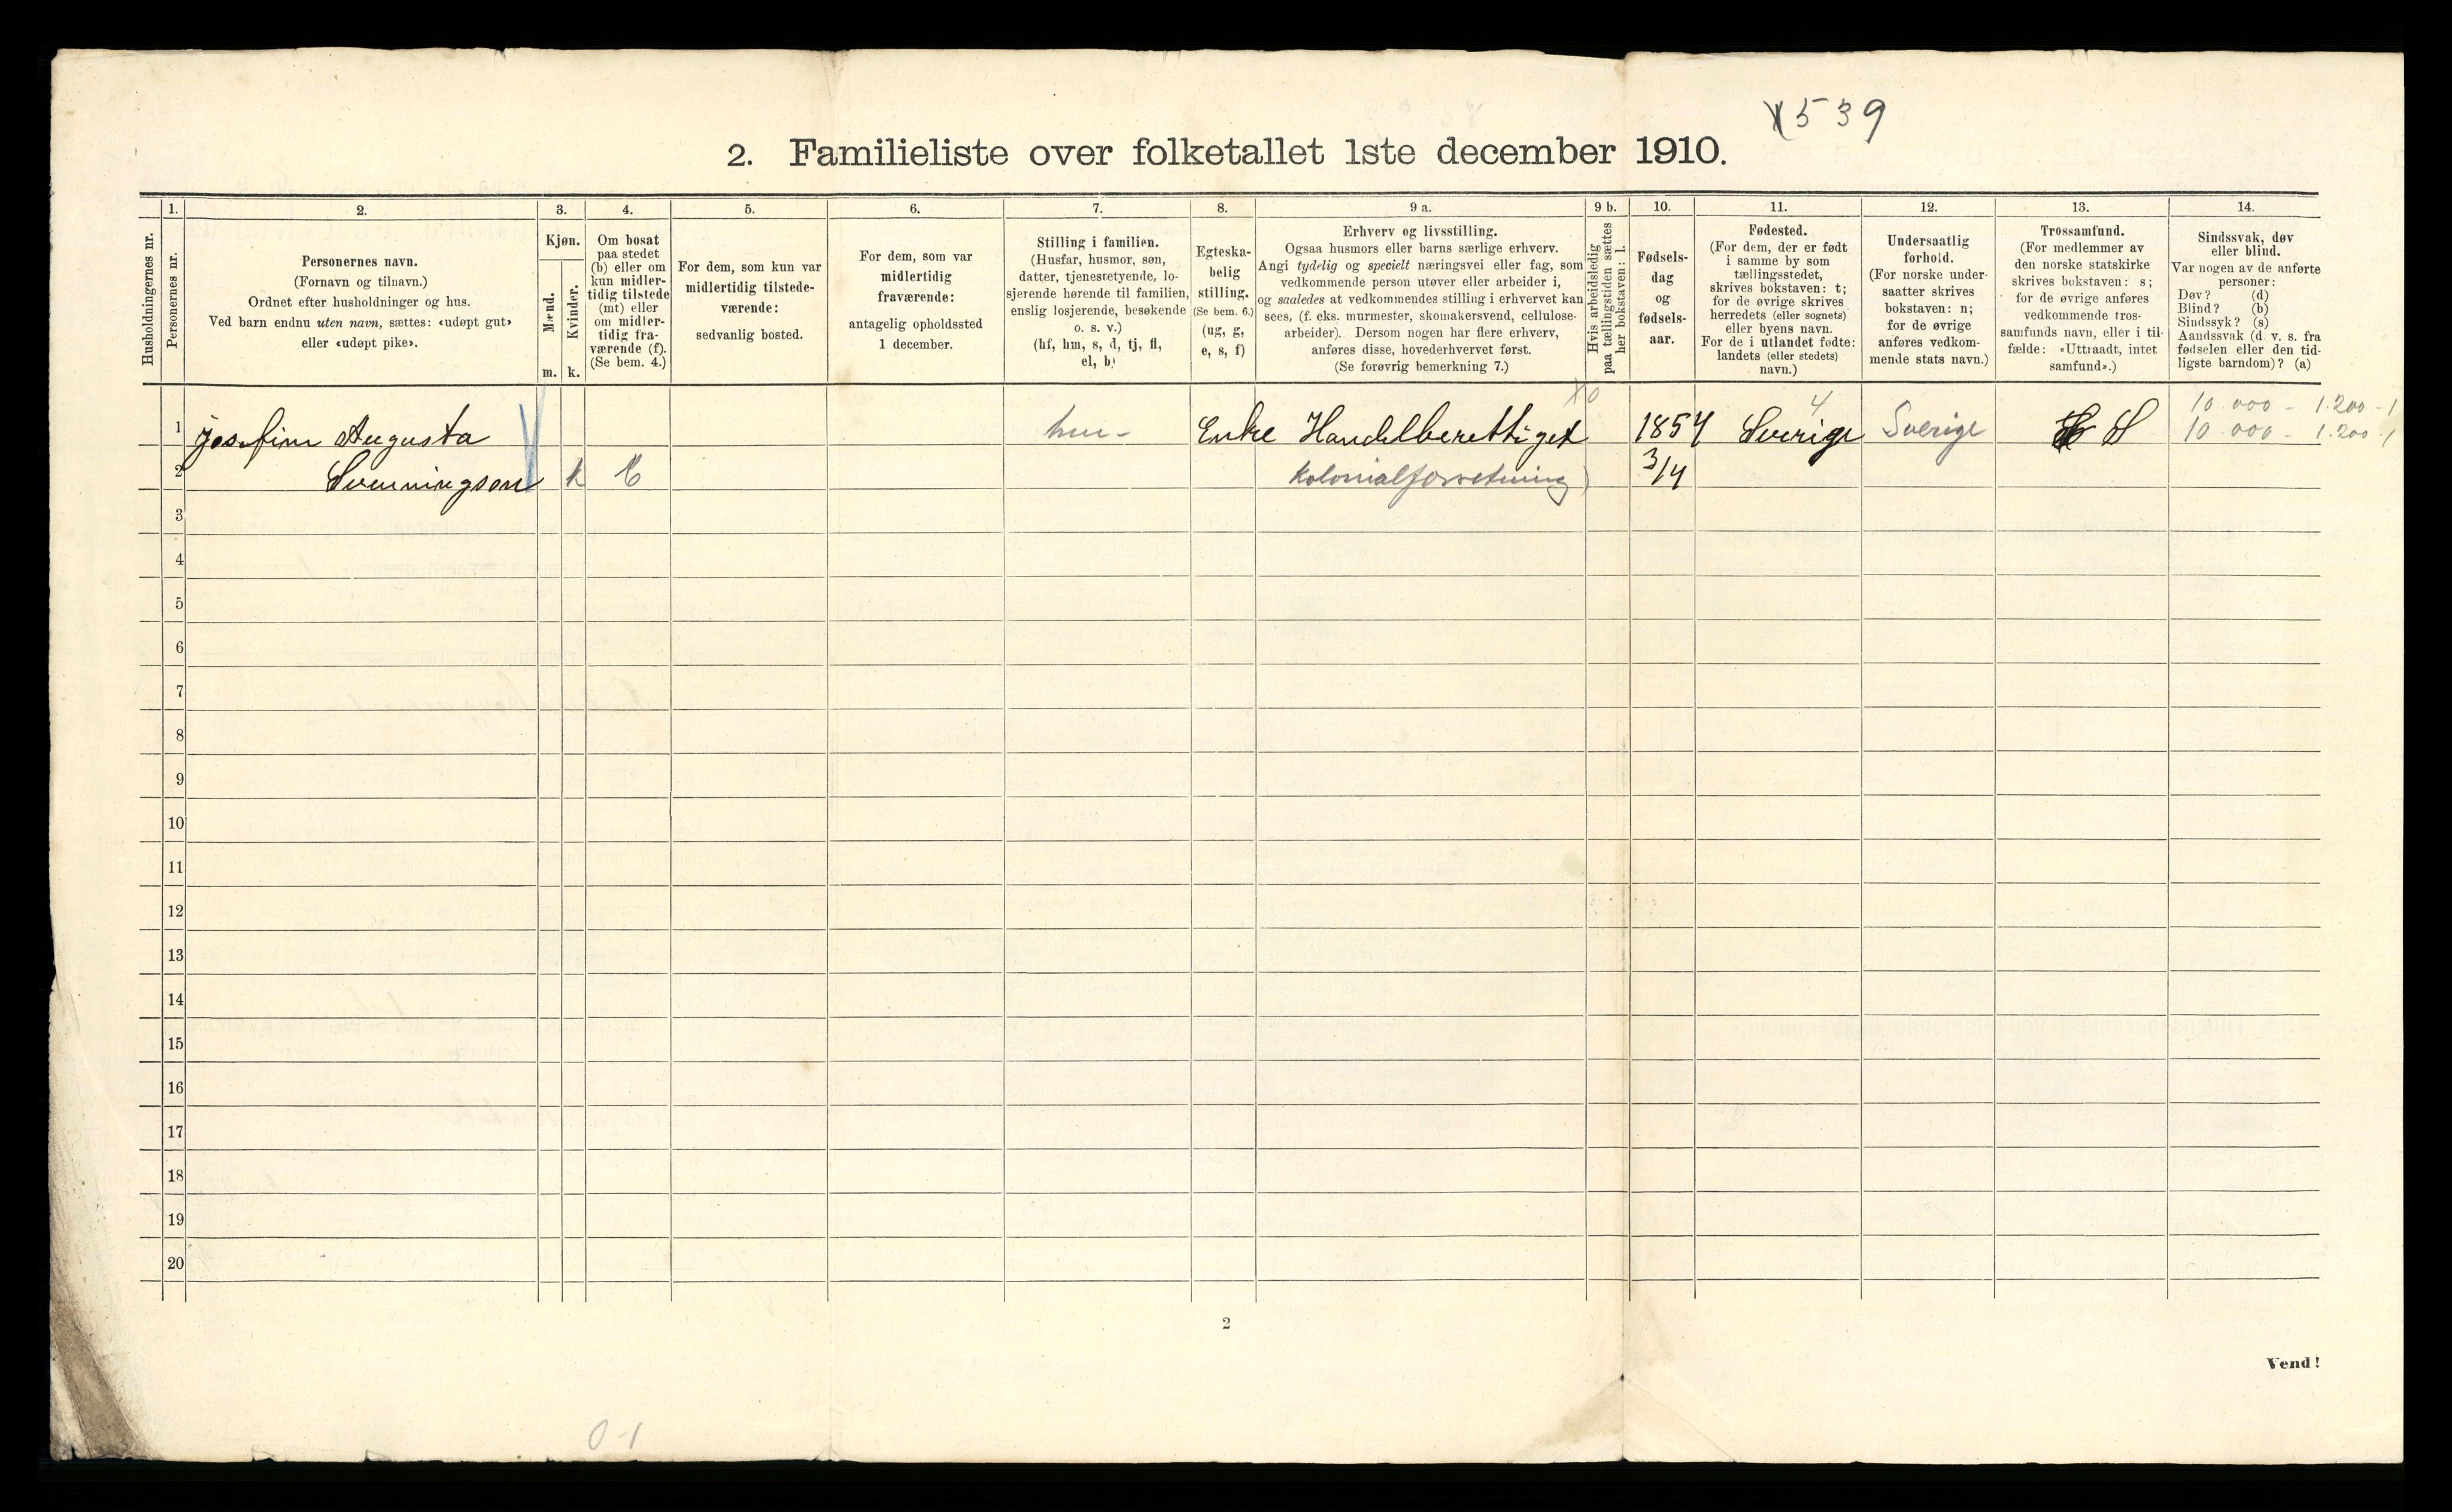 539
2. Familieliste over folketallet 1ste december 1910.
Husholdningernes nr.
1.
Personernes nr.
2.
Personernes navn.
(Fornavn og tilnavn.)
Ordnet efter husholdninger og hus.
Ved barn endnu uten navn, sættes: «udøpt gut»
eller «udøpt pike».
3.
Kjøn.
Mænd.
m.
Kvinder.
k.
4.
Om bosat
paa stedet
(b) eller om
kun midler-
tidig tilstede
(mt) eller
om midler-
tidig fra-
værende (f).
(Se bem. 4.)
5.
For dem, som kun var
midlertidig tilstede-
værende:
sedvanlig bosted.
6.
For dem, som var
midlertidig
fraværende:
antagelig opholdssted
1 december.
7.
Stilling i familien.
(Husfar, husmor, søn,
datter, tjenestetyende, lo-
sjerende hørende til familien,
enslig losjerende, besøkende
o. s. v.)
(hf, hm, s, d, tj, fl,
el, b)
8.
Egteska-
belig
stilling.
(Se bem. 6.)
(ug, g,
e, s, f)
9 a.
Erhverv og livsstilling.
Ogsaa husmors eller barns særlige erhverv.
Angi tydelig og specielt næringsvei eller fag, som
vedkommende person utøver eller arbeider i,
og saaledes at vedkommendes stilling i erhvervet kan
sees, (f. eks. murmester, skomakersvend, cellulose-
arbeider). Dersom nogen har flere erhverv,
anføres disse, hovederhvervet først.
(Se forøvrig bemerkning 7.)
9 b.
Hvis arbeidsledig
paa tællingstiden sættes
her bokstaven: l.
10.
Fødsels-
dag
og
fødsels-
aar.
11.
Fødested.
(For dem, der er født
i samme by som
tællingsstedet,
skrives bokstaven: t;
for de øvrige skrives
herredets (eller sognets)
eller byens navn.
For de i utlandet fødte:
landets (eller stedets)
navn.)
12.
Undersaatlig
forhold.
(For norske under-
saatter skrives
bokstaven: n;
for de øvrige
anføres vedkom-
mende stats navn.)
13.
Trossamfund.
(For medlemmer av
den norske statskirke
skrives bokstaven: s;
for de øvrige anføres
vedkommende tros-
samfunds navn, eller i til-
fælde: «Uttraadt, intet
samfund».)
14.
Sindssvak, døv
eller blind.
Var nogen av de anførte
personer:
Døv? (d)
Blind? (b)
Sindssyk? (s)
Aandssvak (d. v. s. fra
fødselen eller den tid-
ligste barndom)? (a)
X0
4
10 000 - 1.200 - 1
1 Josefine Augusta hm- Enke Handelberettiget 1854 Sverige Sverige S 10 000 - 1.200 - 1
2 Svenningsen k b kolonialforretning) 3/4
3
4
5
6
7
8
9
10
11
12
13
14
15
16
17
18
19
20
2
Vend!
0-1